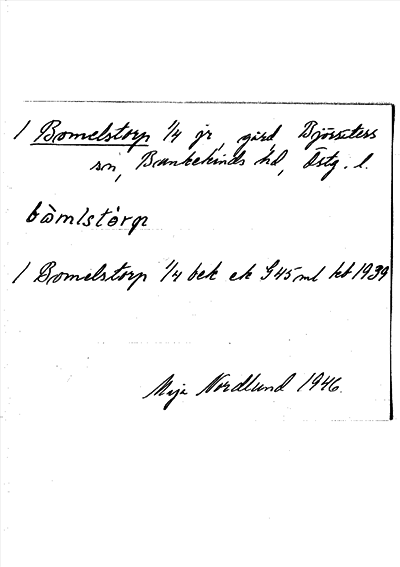 1 Bomelstorp 1/4 jr, gård, Björsäters
sn, Bankekinds hd, Östg. l.
bòmlstòrp
1 Bomelstorp 1/4 bek ek G45 ml kb 1939
Maja Nordlund 1946.